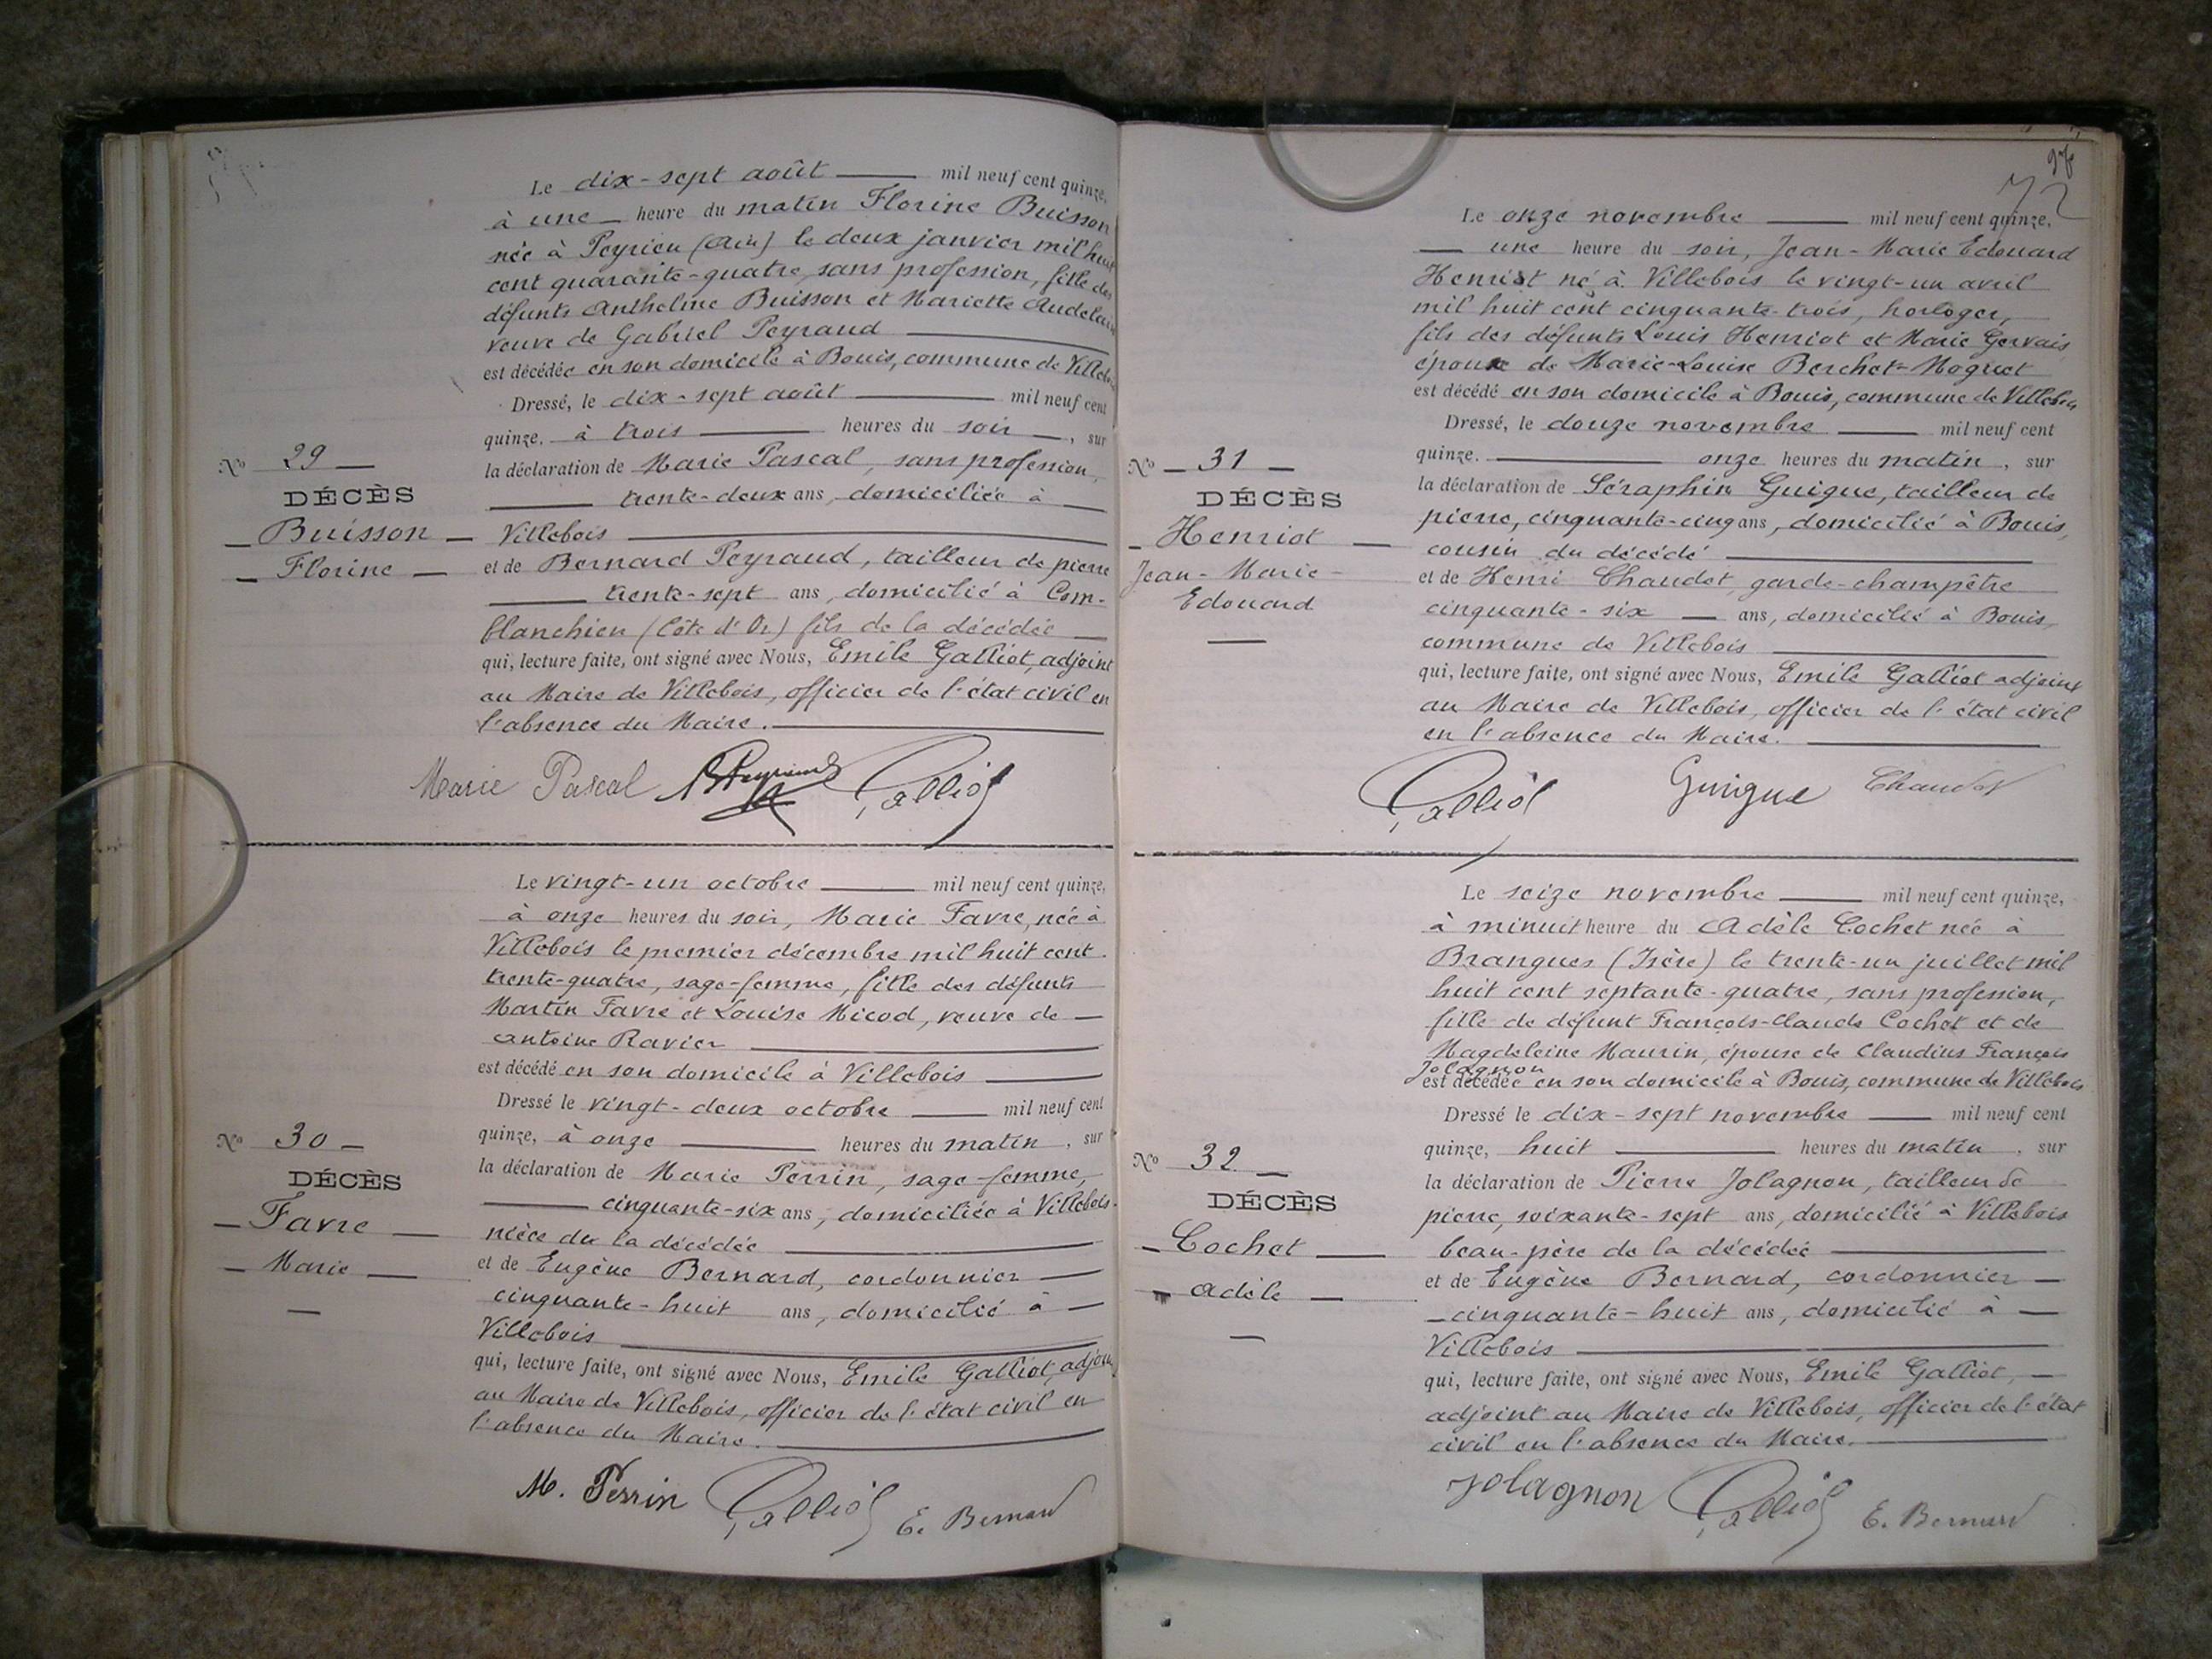 Le dix-sept août mil neuf cent quinze,
à une heure du matin Florine Buisson
née à Peyrieu (Ain) le deux janvier mil huit
cent quarante-quatre, sans profession, fille des
défunts Anthelme Buisson et Mariette Audelain
veuve de Gabriel Peyraud
est décédée en son domicile à Bouis, commune de Villebois
Dressé, le dix-sept août mil neuf cent
quinze. à trois heures du soir, sur
la déclaration de Marie Pascal, sans profession,
trente-deux ans, domiciliée à
Villebois
et de Bernard Peyraud, tailleur de pierre
trente-sept ans, domicilié à Com-
blanchien (Côte d'Or) fils de la décédée
qui, lecture faite, ont signé avec Nous, Emile Galliot, adjoint
au Maire de Villebois, officier de l'état civil en
l'absence du Maire.
N° 29
DÉCÈS
Buisson
Florine
Marie Pascal BPeyraud Galliot
Le vingt-un octobre mil neuf cent quinze,
à onze heures du soir, Marie Favre, née à
Villebois le premier décembre mil huit cent
trente-quatre, sage-femme, fille des défunts
Martin Favre et Louise Micod, veuve de
Antoine Ravier
est décédé en son domicile à Villebois
Dressé le vingt-deux octobre mil neuf cent
quinze, à onze heures du matin, sur
la déclaration de Marie Perrin, sage-femme,
cinquante-six ans, domiciliée à Villebois.
nièce de la décédée
et de Eugène Bernard, cordonnier
cinquante-huit ans, domicilié à
Villebois
qui, lecture faite, ont signé avec Nous, Emile Galliot, adjoint
au Maire de Villebois, officier de l'état civil en
l'absence du Maire.
N° 30
DÉCÈS
Favre
Marie
M. Perrin Galliot E. Bernard
72
Le onze novembre mil neuf cent quinze.
une heure du soir, Jean-Marie Edouard
Henriot né à Villebois le vingt-un avril
mil huit cent cinquante-trois, horloger,
fils des défunts Louis Henriot et Marie Gervais
époux de Marie-Louise Berchet-Moguet
est décédé en son domicile à Bouis, commune de Villebois
Dressé, le douze novembre mil neuf cent
quinze. onze heures du matin, sur
la déclaration de Séraphin Guigue, tailleur de
pierre, cinquante-cinq ans, domicilié à Bouis,
cousin du décédé
et de Henri Chaudet, garde-champêtre
cinquante-six ans, domicilié à Bouis,
commune de Villebois
qui, lecture faite, ont signé avec Nous, Emile Galliot adjoint
au Maire de Villebois, officier de l'état civil
en l'absence du Maire.
N° 31
DÉCÈS
Henriot
Jean-Marie
Edouard
Galliot Guigue Chaudet
Le seize novembre mil neuf cent quinze,
à minuit heure du Adèle Cochet née à
Brangues (Isère) le trente-un juillet mil
huit cent septante-quatre, sans profession,
fille de défunt François-Claude Cochet et de
Magdeleine Maurin, épouse de Claudius François
Jolagnon
est décédée en son domicile à Bouis, commune de Villebois
Dressé le dix-sept novembre mil neuf cent
quinze, huit heures du matin, sur
la déclaration de Pierre Jolagnon, tailleur de
pierre, soixante-sept ans, domicilié à Villebois
beau-père de la décédée
et de Eugène Bernard, cordonnier
cinquante-huit ans, domicilié à
Villebois
qui, lecture faite, ont signé avec Nous, Emile Galliot,
adjoint au Maire de Villebois, officier de l'état
civil en l'absence du Maire.
N° 32
DÉCÈS
Cochet
Adèle
Jolagnon Galliot E. Bernard